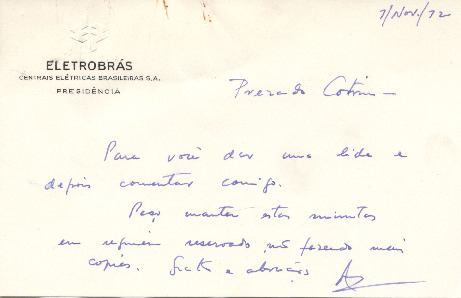 7/Nov./72
ELETROBRÁS
CENTRAIS ELÉTRICAS BRASILEIRAS S.A.
PRESIDÊNCIA
Prezado Cotrim —
Para você dar uma lida e
depois comentar comigo.
Peço manter estas minutas
em regime reservado, não fazendo mais
copias. Grato e abraços